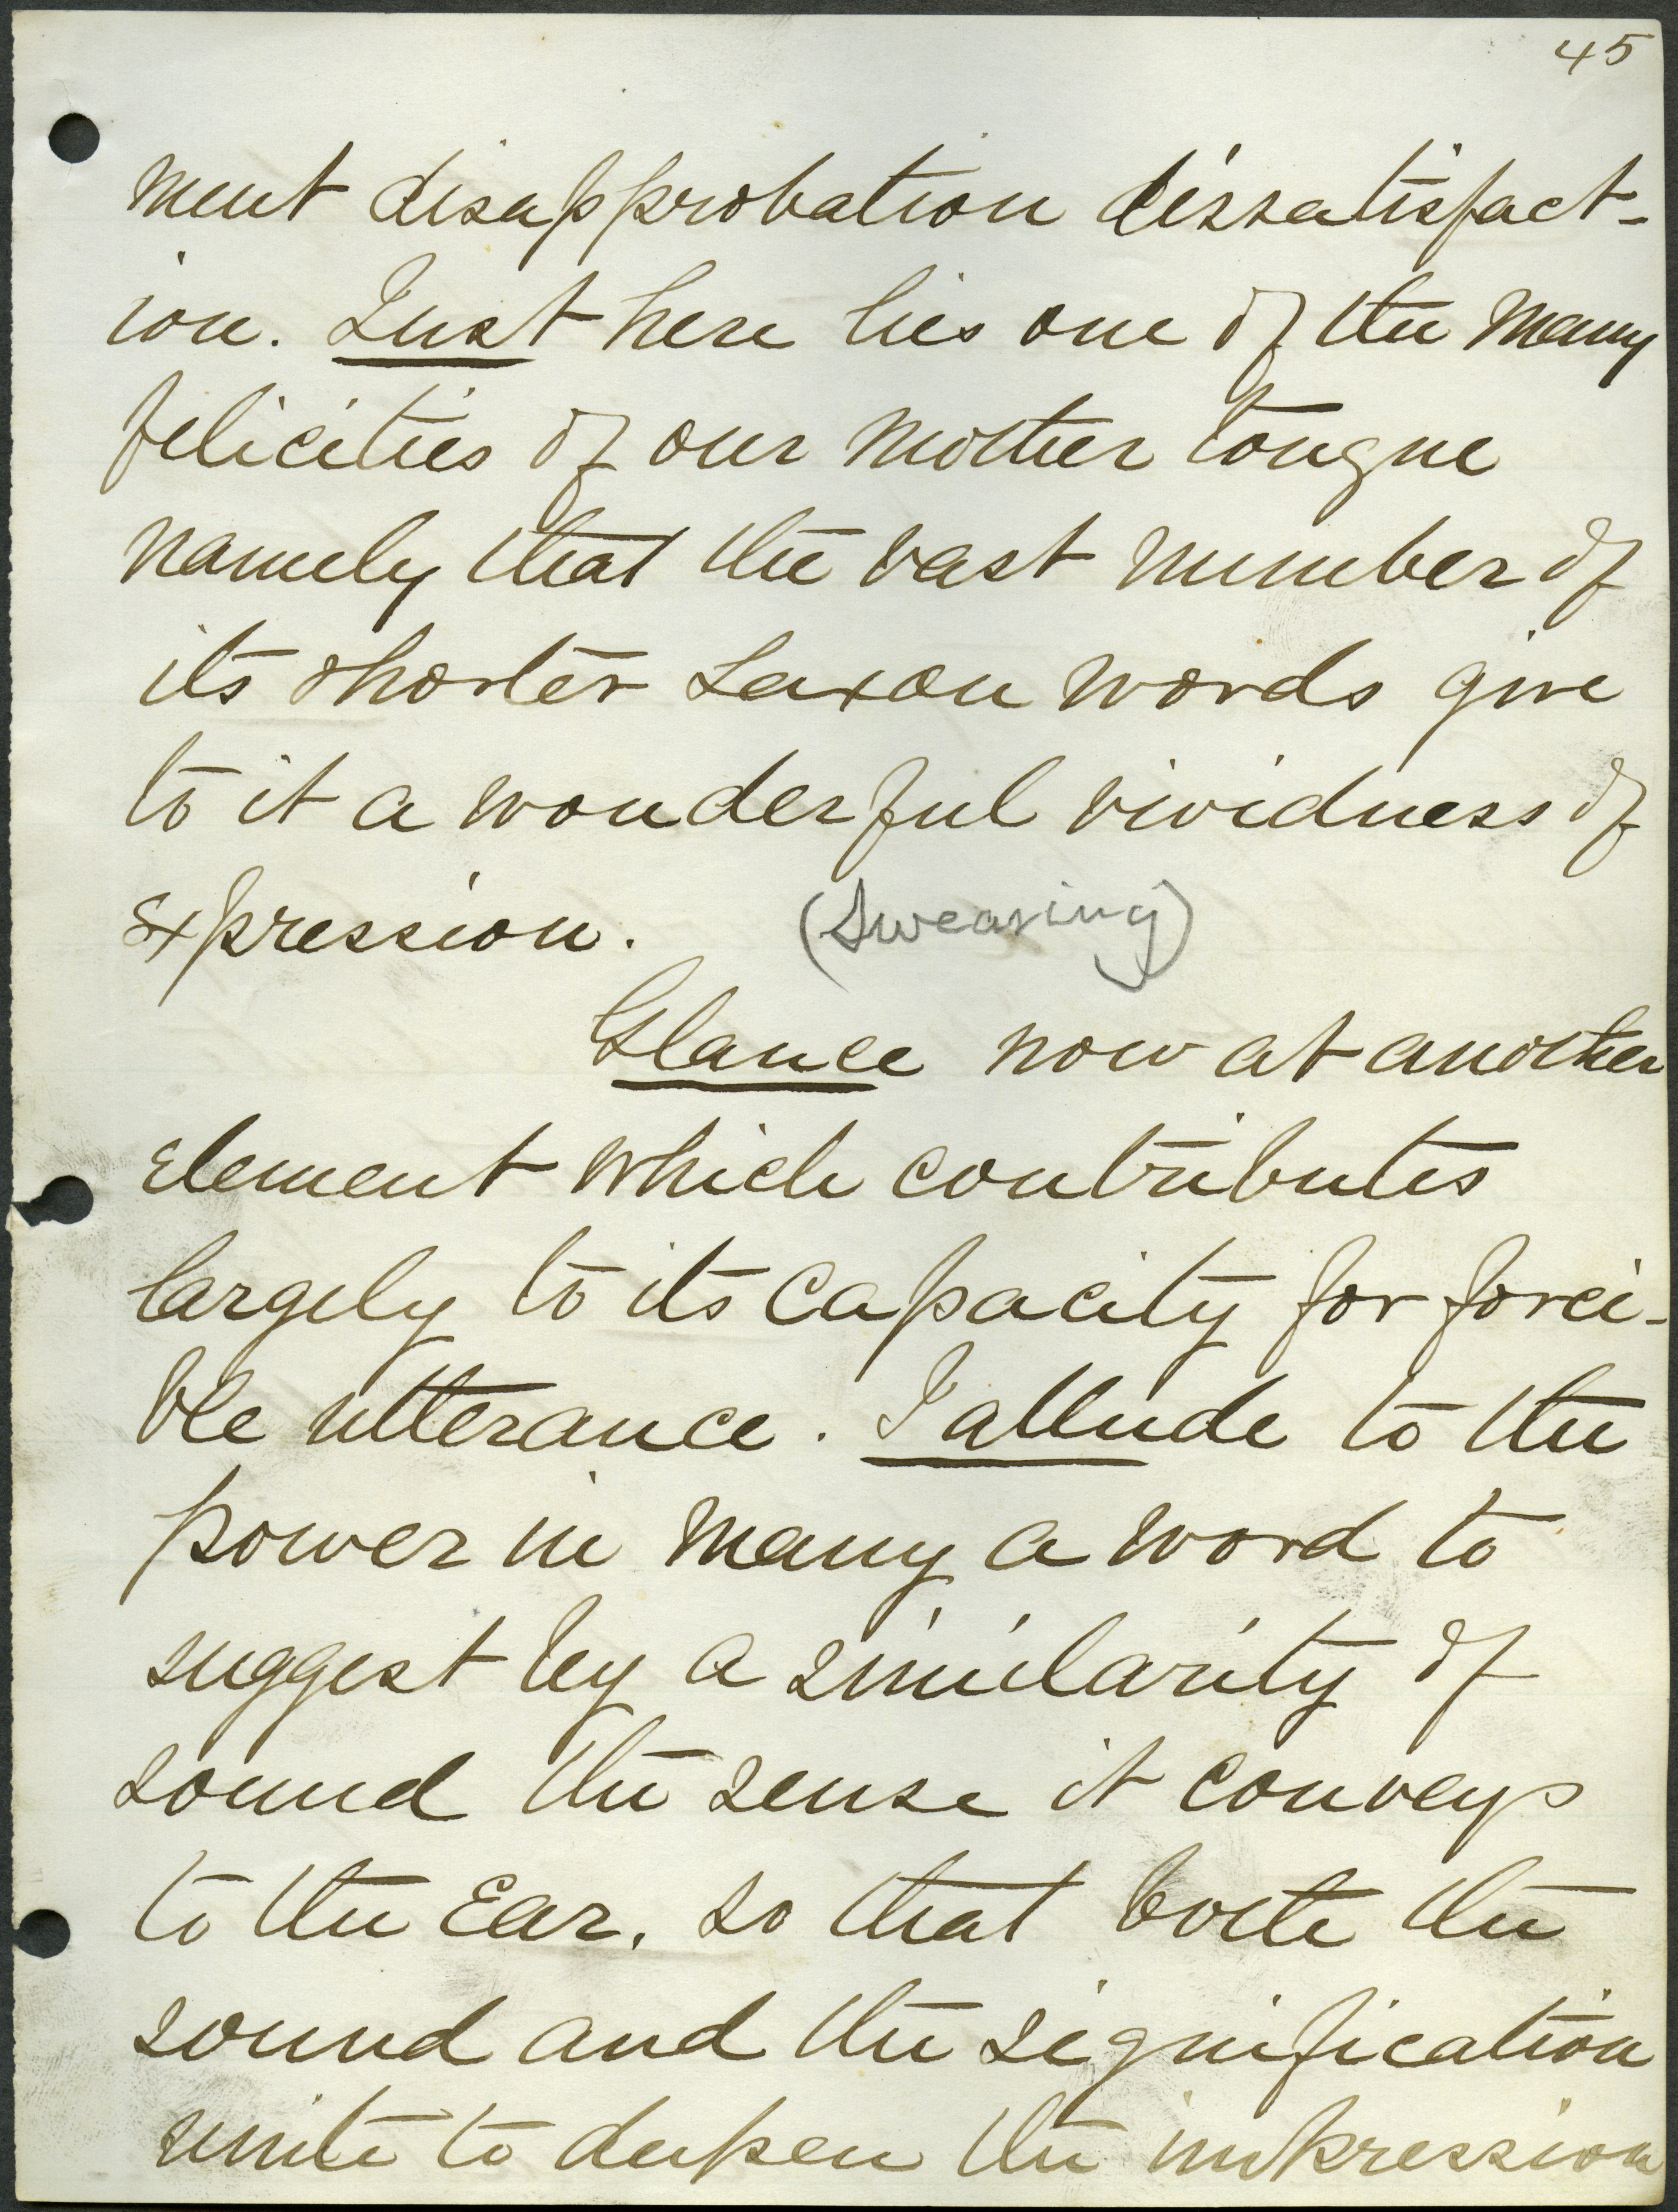 45
ment disapprobation dissatisfact-
ion. Just here lies one of the many
felicities of our mother tongue
namely that the vast number of
its shorter Saxon words give
to it a wonderful vividness of
expression. (Swearing)
Glance now at another
element which contributes
largely to its capacity for forci-
ble utterance. I allude to the
power in many a word to
suggest by a similarity of
sound the sense it conveys
to the Ear, so that both the
sound and the signification
unite to deepen the impression